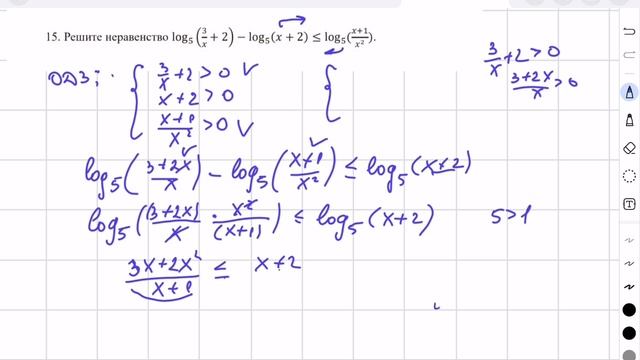 15. Решите неравенство log₅(3/x + 2) − log₅(x + 2) ≤ log₅((x+1)/x²).
3/x + 2 > 0
(3+2x)/x > 0
ОДЗ: { 3/x + 2 > 0 ∨
x + 2 > 0
(x+1)/x² > 0 ∨
{
log₅((3+2x)/x) − log₅((x+1)/x²) ≤ log₅(x+2)
log₅((3+2x)/x · x²/(x+1)) ≤ log₅(x+2) 5>1
(3x+2x²)/(x+1) ≤ x+2